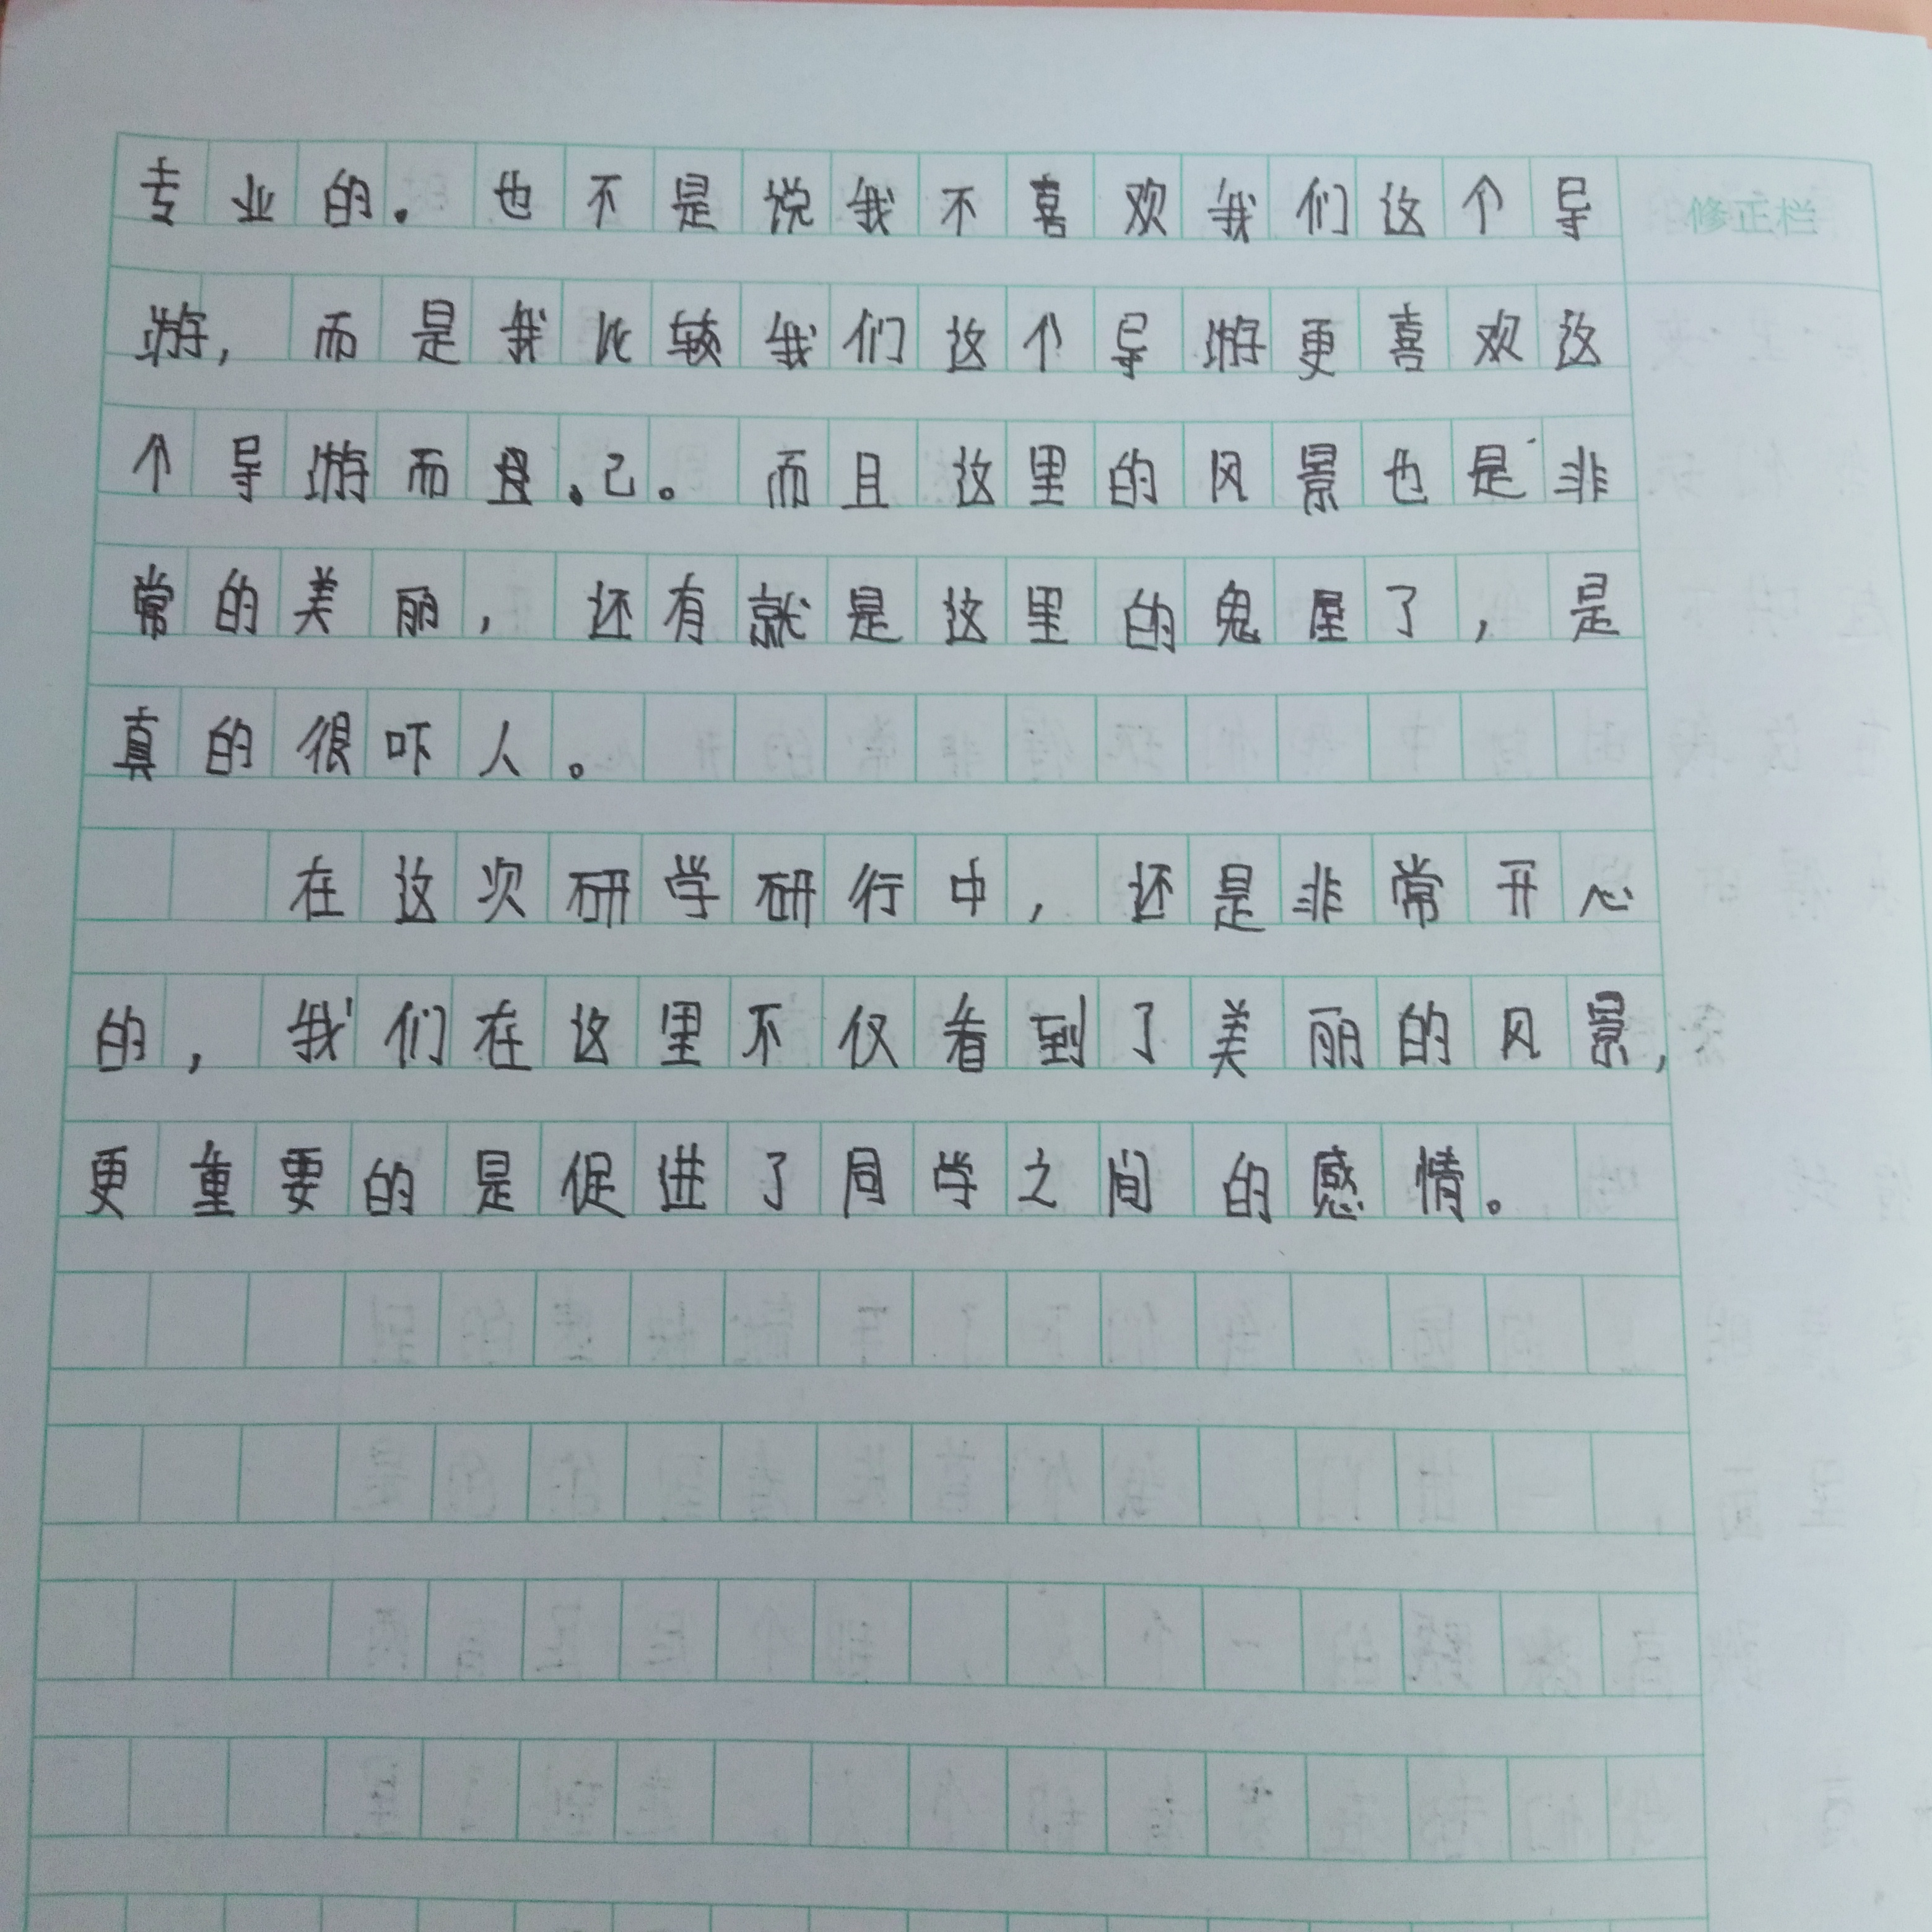 专业的。也不是说我不喜欢我们这个导
修正栏
游，而是我比较我们这个导游更喜欢这
个导游而且.己。而且这里的风景也是非
常的美丽，还有就是这里的鬼屋了，是
真的很吓人。
在这次研学研行中，还是非常开心
的，我们在这里不仅看到了美丽的风景，
更重要的是促进了同学之间的感情。